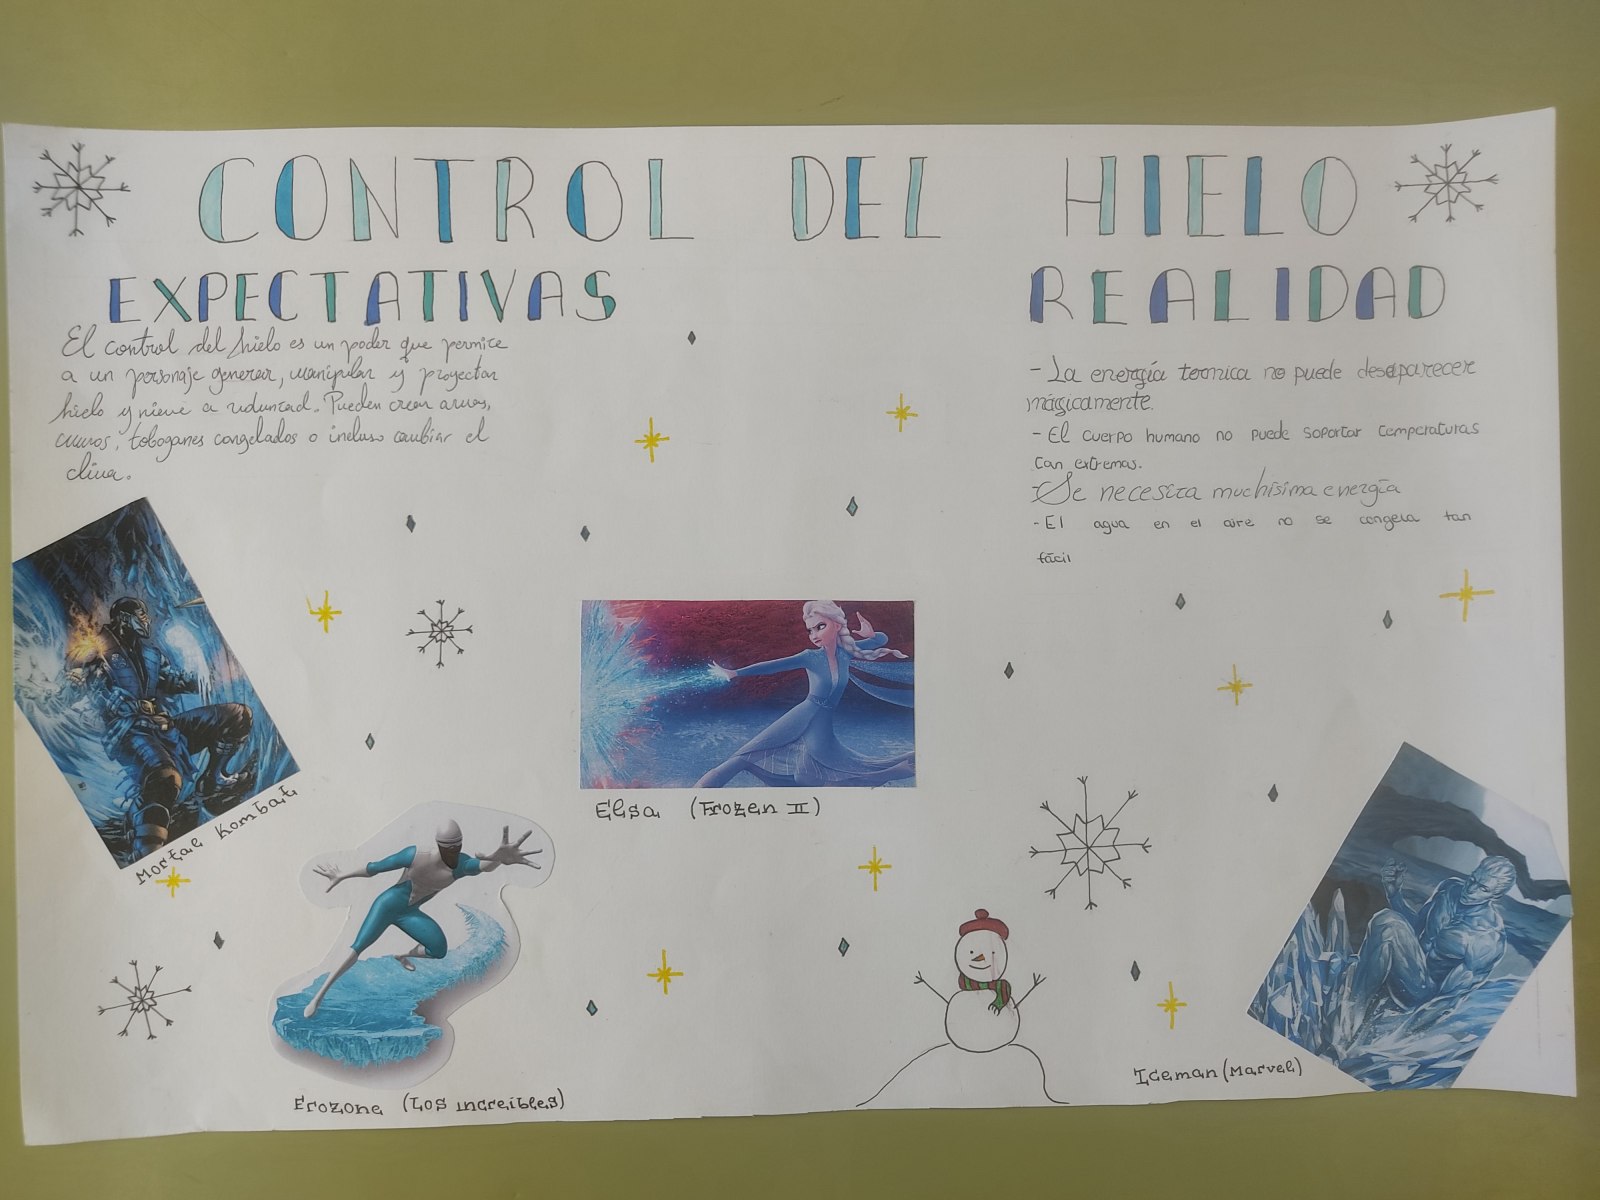 CONTROL DEL HIELO
EXPECTATIVAS
El control del hielo es un poder que permite
a un personaje generar, manipular y proyectar
hielo y nieve a voluntad. Pueden crear armas,
muros, toboganes congelados o incluso cambiar el
clima.
REALIDAD
- La energía termica no puede desaparecer
mágicamente.
- El cuerpo humano no puede soportar temperaturas
tan extremas.
- Se necesita muchísima energía
- El agua en el aire no se congela tan
fácil
Mortal Kombat
Elsa (Frozen II)
Frozone (Los increíbles)
Iceman (Marvel)